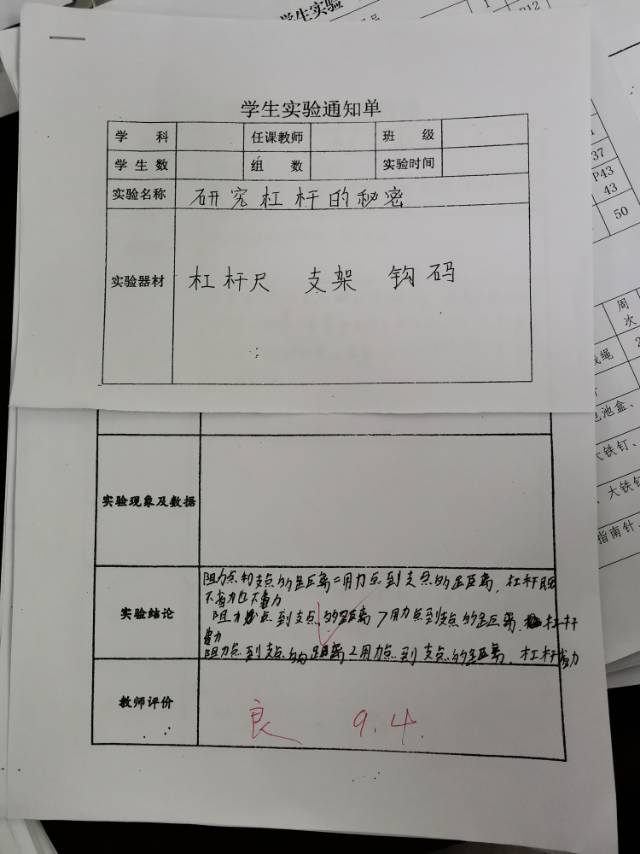 学生实验
学生实验通知单
学 科 任课教师 班 级
学生数 组 数 实验时间
实验名称 研究杠杆的秘密
实验器材 杠杆尺 支架 钩码
实验现象及数据
阻力点到支点的距离=用力点到支点的距离，杠杆
不省力也不费力
实验结论
阻力点到支点的距离>用力点到支点的距离，杠杆
费力
阻力点到支点的距离<用力点到支点的距离，杠杆省力
教师评价
良 9.4.
37
P43
43
50
周
次
电池盒、
大铁钉、
大铁钉
指南针、